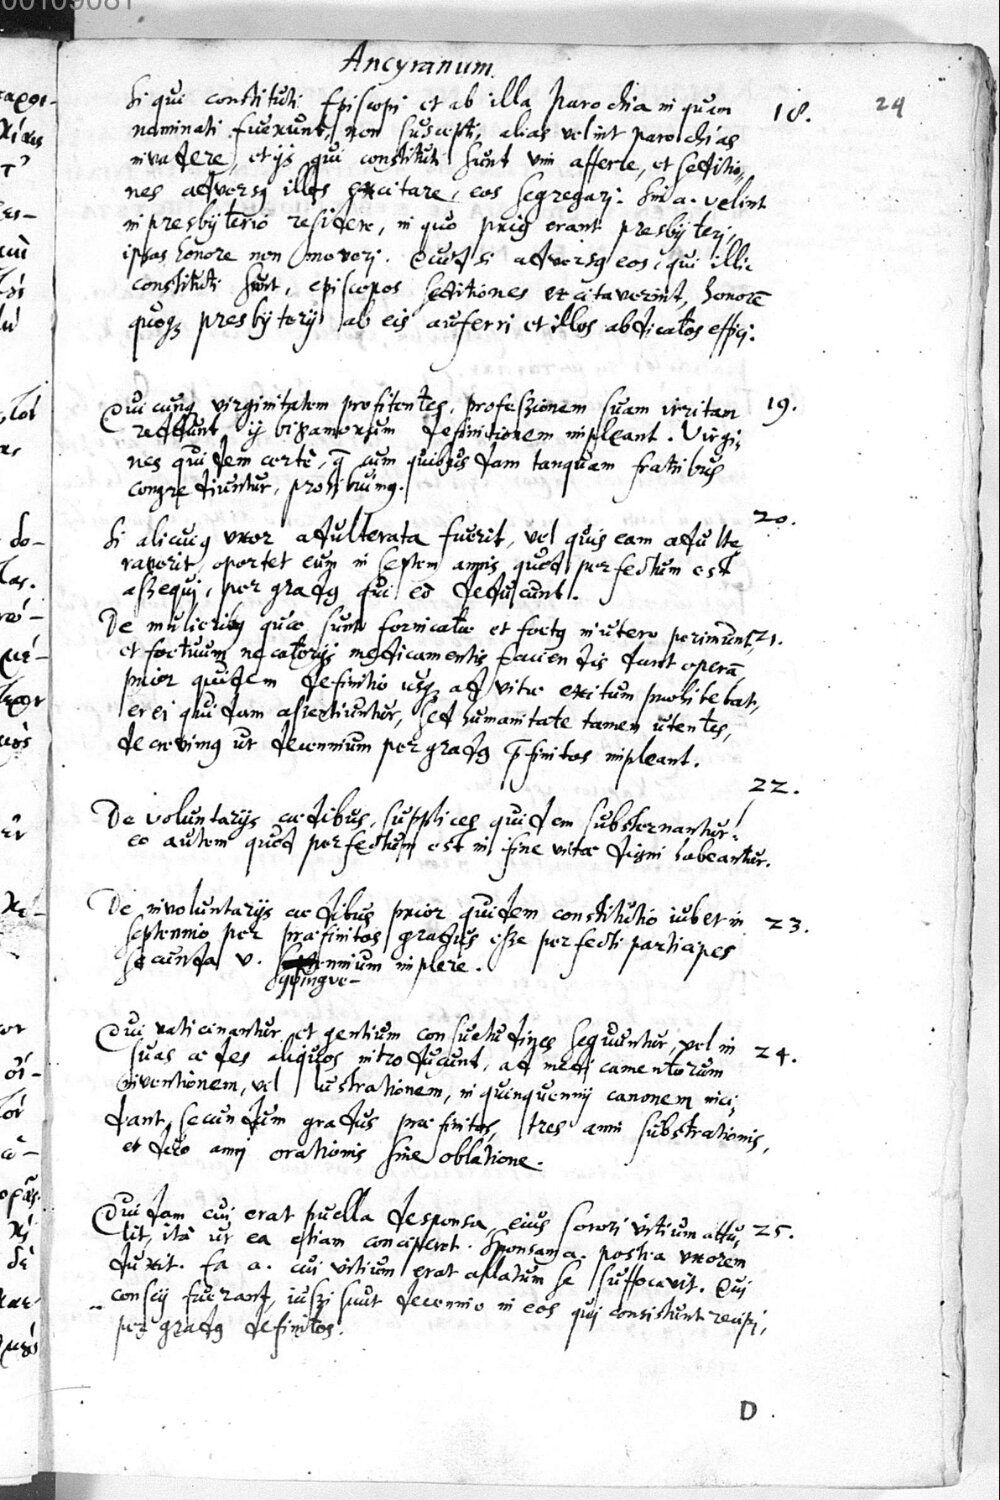 00109081
Ancyranum.
24
Si qui constituti Episcopi et ab illa parochia in quam 18.
nominati fuerunt, non suscepti, alias velint parochias
invadere, et ijs qui constituti sunt vim afferre, et seditio-
nes adversus illos excitare, eos segregari. Sin a. velint
in presbyterio residere, in quo prius erant presbyteri,
ipsos honore non moveri. Quod si adversus eos, qui illic
constituti sunt, episcopos seditiones excitaverint, honorē
quoq; presbyterij ab eis auferri et illos abdicatos effici.
Quicunq; virginitatem profitentes, professionem suam irritam 19.
reddunt, ij bigamorum definitionem impleant. Virgi-
nes quidem certè, q̄ cum quibusdam tanquam fratribus
congrediuntur, prohibuimus.
20.
Si alicuius uxor adulterata fuerit, vel quis eam adulte
raverit, oportet eum in septem annis quod perfectum est
assequi, per gradus qui eò deducunt.
De mulieribus quae sunt fornicatae et foetus in utero perimunt, 21.
et foetuum necatorijs medicamentis faciendis dant operā,
prior quidem definitio usq; ad vitae exitum prohibebat,
et ei quidam assentiuntur, sed humanitate tamen utentes,
decrevimus ut decennium per gradus p̄finitos impleant.
22.
De voluntarijs caedibus, supplices quidem substernantur:
eo autem quod perfectum est in fine vitae digni habeantur.
De involuntarijs caedibus prior quidem constitutio iubet in 23.
septennio per praefinitos gradus esse perfecti participes
secunda v. ennium implere.
quinque-
Qui vaticinantur et gentium consuetudines sequuntur, vel in 24.
suas aedes aliquos introducunt, ad medicamentorum
inventionem, vel lustrationem, in quinquennij canonem inci-
dant, secundum gradus praefinitos, tres anni substrationis,
et duo anni orationis sine oblatione.
Quidam cui erat puella desponsa, eius sorori vitium attu- 25.
lit, ità ut ea etiam conciperet. Sponsam a. postea uxorem
duxit. Ea a. cui vitium erat allatum se suffocavit. Qui
conscij fuerant, iussi sunt decennio in eos qui consistunt recipi,
per gradus definitos.
D